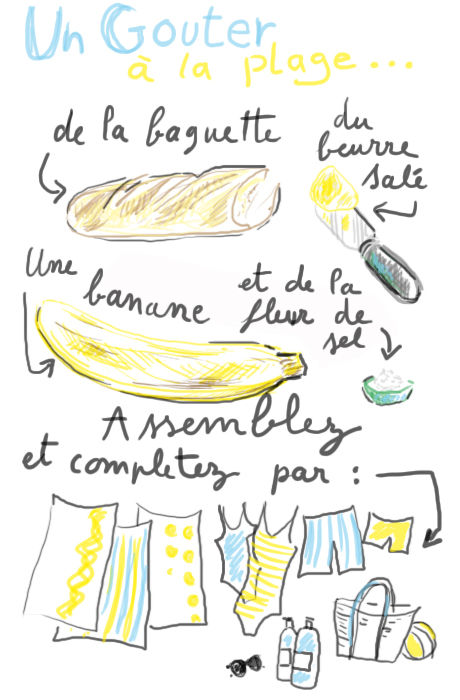 Un Gouter
à la plage...
de la baguette
du
beurre
salé
Une
banane
et de la
fleur de
sel
Assemblez
et completez par :